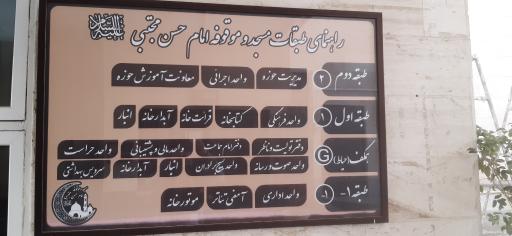 راهنمای طبقات مسجد و موقوفه امام حسن مجتبی علیه‌السلام
طبقه دوم ۲ مدیریت حوزه واحد اجرائی معاونت آموزش حوزه
طبقه اول ۱ واحد فرهنگی کتابخانه قرائت خانه آبدارخانه انبار
همکف (حیاط) G دفتر تولیت و ناظر دفتر امام جماعت واحد مالی و پشتیبانی واحد حراست
واحد صوت و رسانه واحد بسیج برادران انبار آبدارخانه سرویس بهداشتی
طبقه ۱- ۱- واحد اداری آمفی تئاتر موتورخانه